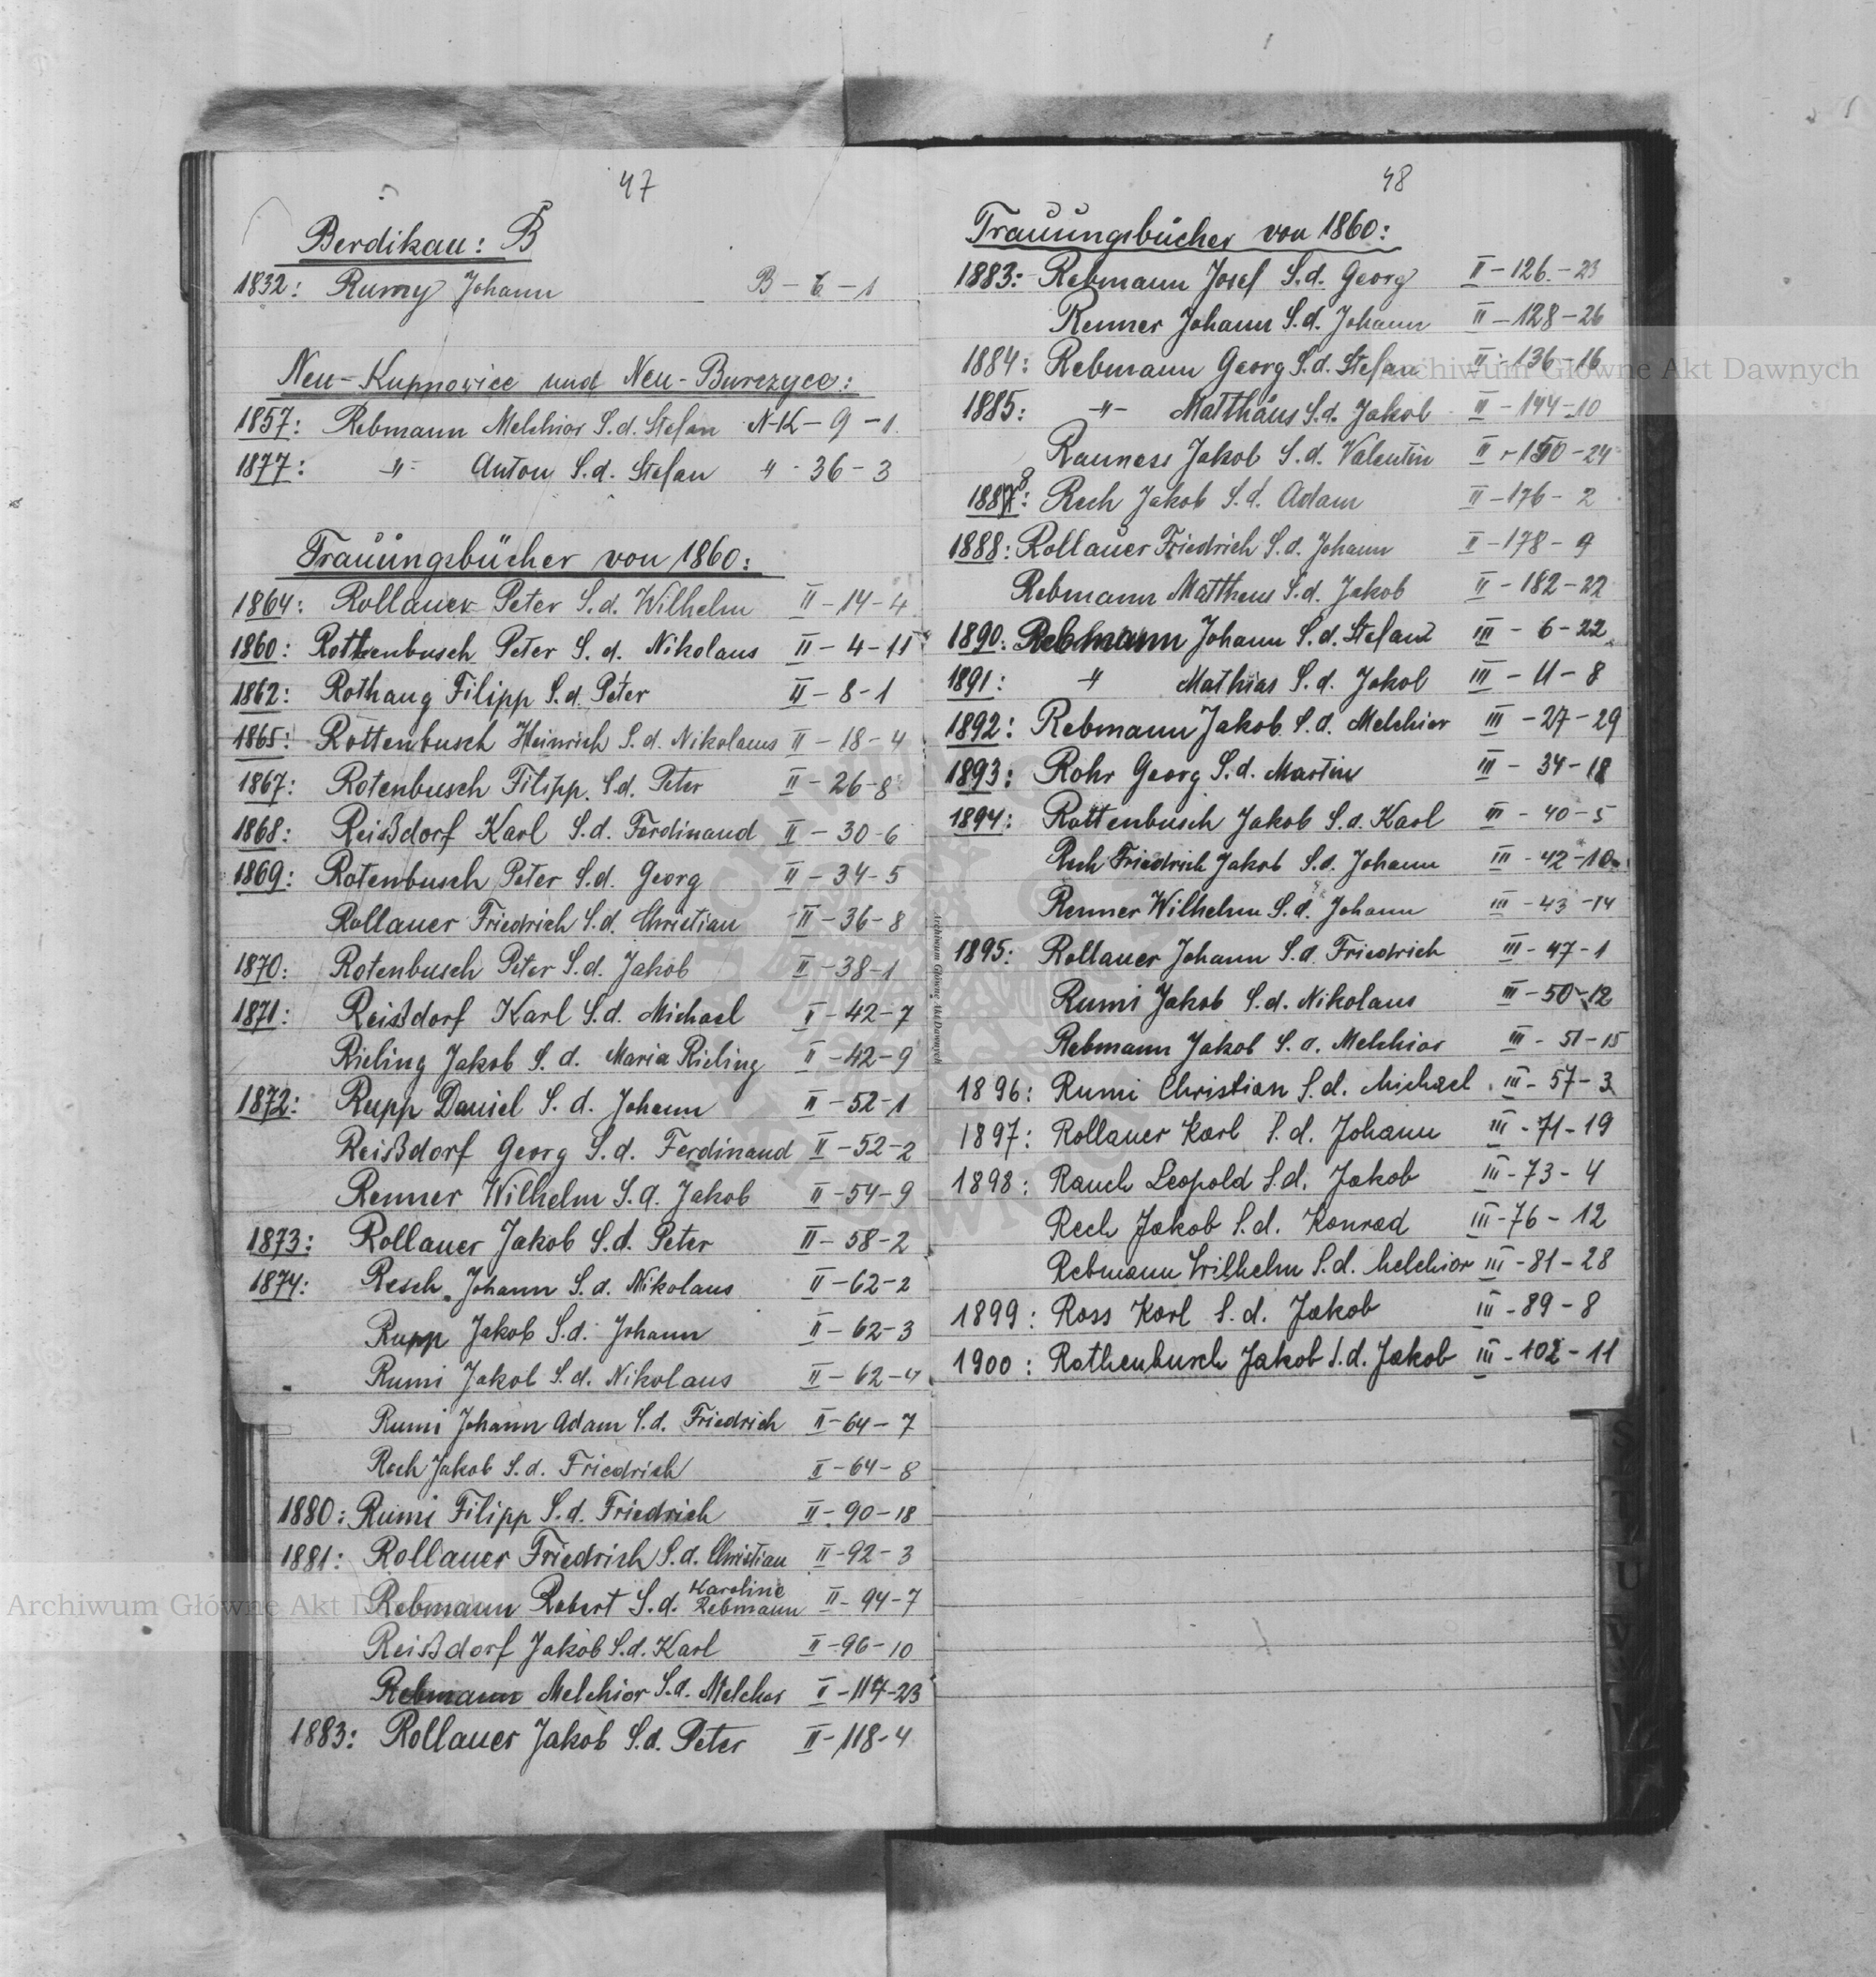 47
Berdikau: B
1832: Rumy Johann B - 6 - 1
Neu-Kupnowice und Neu-Burczyce:
1857: Rebmann Melchior S.d. Stefan N-K - 9 - 1
1877: -"- Anton S.d. Stefan " - 36 - 3
Trauungsbücher von 1860:
1864: Rollauer Peter S.d. Wilhelm II - 14 - 4
1860: Rothenbusch Peter S. d. Nikolaus II - 4 - 11
1862: Rothaug Filipp S.d. Peter II - 8 - 1
1865: Rottenbusch Heinrich S.d. Nikolaus II - 18 - 4
1867: Rotenbusch Filipp. S.d. Peter II - 26 - 8
1868: Reißdorf Karl S.d. Ferdinand II - 30 - 6
1869: Rotenbusch Peter S.d. Georg II - 34 - 5
Rollauer Friedrich S.d. Christian II - 36 - 8
1870: Rotenbusch Peter S.d. Jakob II - 38 - 1
1871: Reißdorf Karl S.d. Michael II - 42 - 7
Rieling Jakob S. d. Maria Rieling II - 42 - 9
1872: Rupp Daniel S. d. Johann II - 52 - 1
Reißdorf Georg S.d. Ferdinand II - 52 - 2
Renner Wilhelm S.d. Jakob II - 54 - 9
1873: Rollauer Jakob S.d. Peter II - 58 - 2
1874: Resch Johann S.d. Nikolaus II - 62 - 2
Rupp Jakob S.d. Johann II - 62 - 3
Rumi Jakob S.d. Nikolaus II - 62 - 4
Rumi Johann Adam S.d. Friedrich II - 64 - 7
Rech Jakob S.d. Friedrich II - 64 - 8
1880: Rumi Filipp S.d. Friedrich II - 90 - 18
1881: Rollauer Friedrich S.d. Christian II - 92 - 3
Rebmann Robert S.d. Karoline Rebmann II - 94 - 7
Reißdorf Jakob S.d. Karl II - 96 - 10
Rebmann Melchior S.d. Melchor II - 114 - 23
1883: Rollauer Jakob S.d. Peter II - 118 - 4
48
Trauungsbücher von 1860:
1883: Rebmann Josef S.d. Georg II - 126. - 23
Renner Johann S.d. Johann II - 128 - 26
1884: Rebmann Georg S.d. Stefan II - 136 - 16
1885: -"- Matthäus S.d. Jakob II - 144 - 10
Rauness Jakob S.d. Valentin II - 150 - 24
1888: Rech Jakob S.d. Adam II - 176 - 2
1888: Rollauer Friedrich S.d. Johann II - 178 - 9
Rebmann Mattheus S.d. Jakob II - 182 - 22
1890: Rebmann Johann S.d. Stefan III - 6 - 22
1891: " Mathias S.d. Jakob III - 11 - 8
1892: Rebmann Jakob S.d. Melchior III - 27 - 29
1893: Rohr Georg S.d. Martin III - 34 - 18
1894: Rottenbusch Jakob S.d. Karl III - 40 - 5
Rech Friedrich Jakob S.d. Johann III - 42 - 10
Renner Wilhelm S.d. Johann III - 43 - 14
1895: Rollauer Johann S.d. Friedrich III - 47 - 1
Rumi Jakob S.d. Nikolaus III - 50 - 12
Rebmann Jakob S.d. Melchior III - 51 - 15
1896: Rumi Christian S.d. Michael III - 57 - 3
1897: Rollauer Karl S.d. Johann III - 71 - 19
1898: Rauch Leopold S.d. Jakob III - 73 - 4
Rech Jakob S.d. Konrad III - 76 - 12
Rebmann Wilhelm S.d. Melchior III - 81 - 28
1899: Ross Karl S.d. Jakob III - 89 - 8
1900: Rothenbusch Jakob S.d. Jakob III - 102 - 11
S
T
U
V
Archiwum Główne Akt Dawnych
Archiwum Główne Akt Dawnych
Archiwum Główne Akt Dawnych